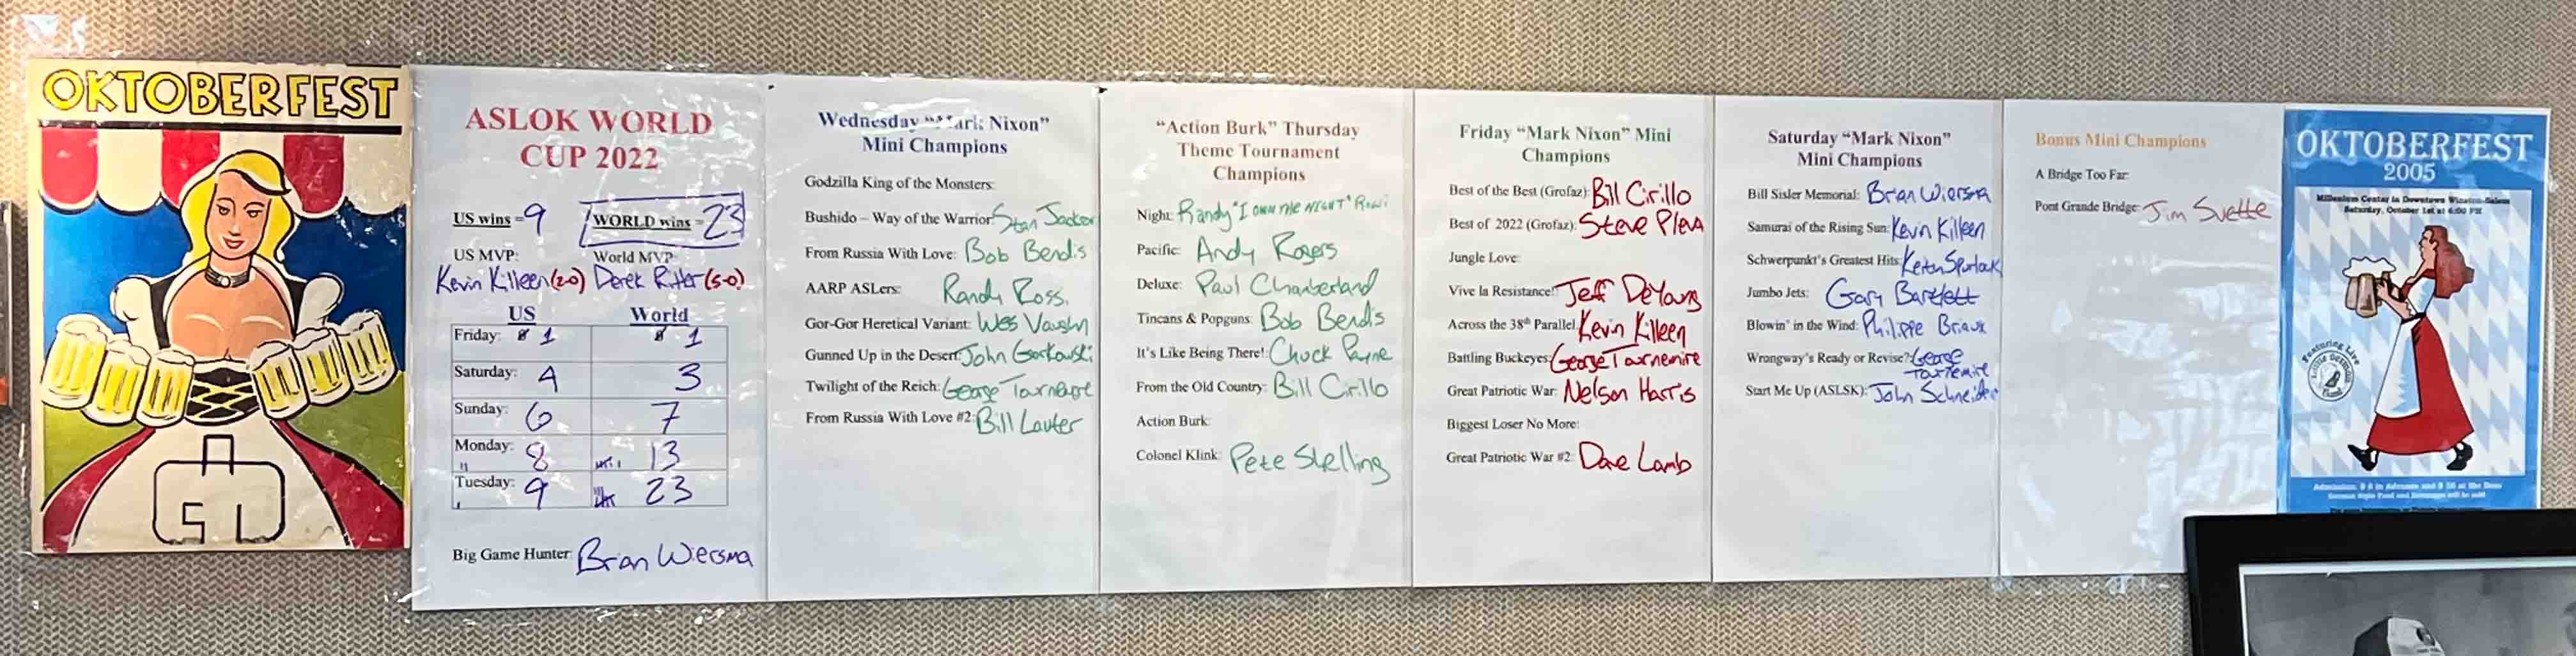 OKTOBERFEST
ASLOK WORLD
CUP 2022
US wins = 9
WORLD wins = 23
US MVP:
World MVP
Kevin Killeen (2-0)
Derek Ritter (5-0)
US World
Friday: 1 1
Saturday: 4 3
Sunday: 6 7
Monday: 8 13
Tuesday: 9 23
Big Game Hunter: Brian Wiersma
Wednesday "Mark Nixon"
Mini Champions
Godzilla King of the Monsters:
Bushido – Way of the Warrior: Stan Jackson
From Russia With Love: Bob Bendis
AARP ASLers: Randy Ross
Gor-Gor Heretical Variant: Wes Vaughn
Gunned Up in the Desert: John Gorkowski
Twilight of the Reich: George Tournemire
From Russia With Love #2: Bill Lauter
"Action Burk" Thursday
Theme Tournament
Champions
Night: Randy "I OWN THE NIGHT"
Pacific: Andy Rogers
Deluxe: Paul Chamberland
Tincans & Popguns: Bob Bendis
It's Like Being There!: Chuck Payne
From the Old Country: Bill Cirillo
Action Burk:
Colonel Klink: Pete Shelling
Friday "Mark Nixon" Mini
Champions
Best of the Best (Grofaz): Bill Cirillo
Best of 2022 (Grofaz): Steve Pleva
Jungle Love:
Vive la Resistance!: Jeff DeYoung
Across the 38th Parallel: Kevin Killeen
Battling Buckeyes: George Tournemire
Great Patriotic War: Nelson Harris
Biggest Loser No More:
Great Patriotic War #2: Dave Lamb
Saturday "Mark Nixon"
Mini Champions
Bill Sisler Memorial: Brian Wiersma
Samurai of the Rising Sun: Kevin Killeen
Schwerpunkt's Greatest Hits: Keiten Spurlock
Jumbo Jets: Gary Bartlett
Blowin' in the Wind: Philippe Briaux
Wrongway's Ready or Revise?: George
Tournemire
Start Me Up (ASLSK): John Schneider
Bonus Mini Champions
A Bridge Too Far:
Pont Grande Bridge: Jim Svette
OKTOBERFEST
2005
Millenium Center in Downtown Winston-Salem
Saturday, October 1st at 6:00 PM
Featuring Live
Little German
Band
Admission: $ 8 in Advance and $ 10 at the Door
German Style Food and Beverages will be sold